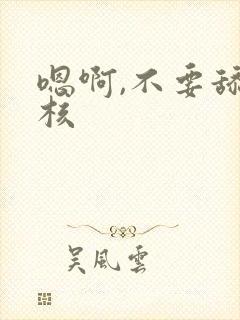 嗯啊,不要舔
核
吴風雲